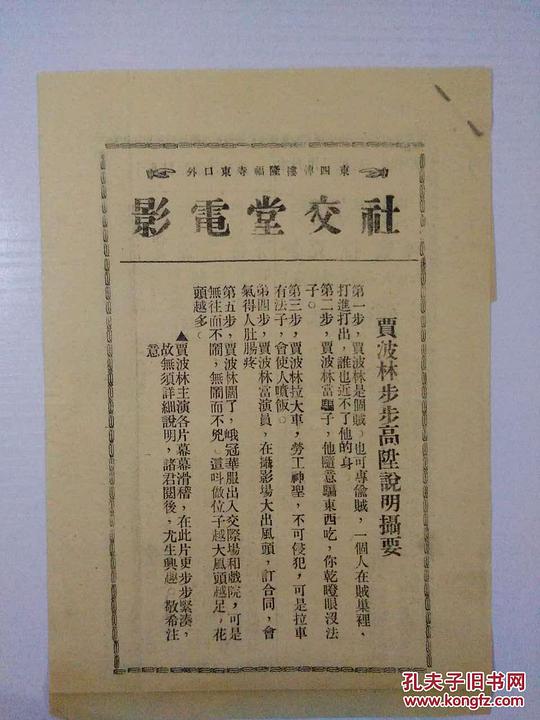 東四牌樓隆福寺東口外
社交堂電影
賈波林步步高陞說明攝要
第一步，賈波林是個賊，也可專偸賊，一個人在賊巢裡，
打進打出，誰也近不了他的身。
第二步，賈波林當騙子，他隨意騙東西吃，你乾瞪眼沒法
子。
第三步，賈波林拉大車，勞工神聖，不可侵犯，可是拉車
有法子，會使人噴飯。
第四步，賈波林當演員，在攝影場大出風頭，訂合同，會
氣得人肚腸疼
第五步，賈波林闊了，峨冠華服出入交際場和戲院，可是
無往而不鬧，無鬧而不兇。這叫做位子越大風頭越足，花
頭越多。
▲賈波林主演各片幕幕滑稽，在此片更步步緊湊，
故無須詳細說明，諸君閱後，尤生興趣。敬希注
意
孔夫子旧书网
www.kongfz.com
孔夫子旧书网
www.kongfz.com